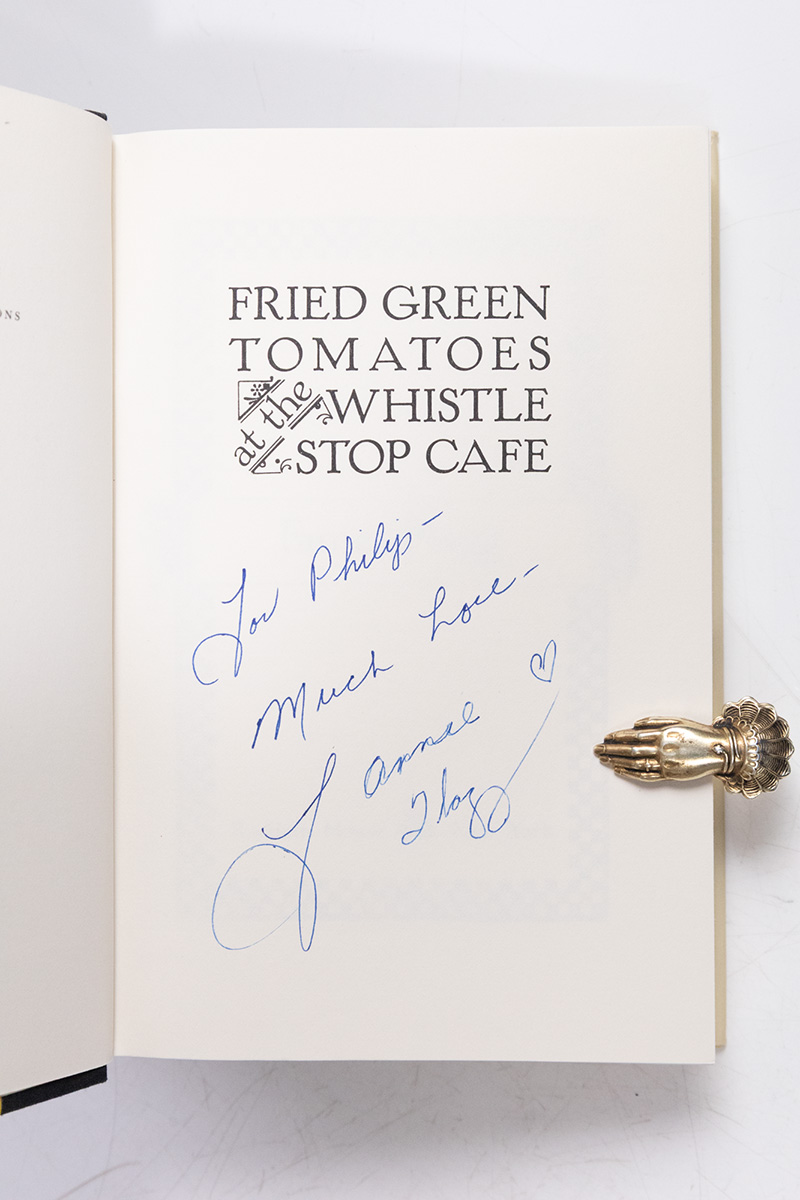 ONS
FRIED GREEN
TOMATOES
at the WHISTLE
STOP CAFE
For Philip –
Much Love –
Fannie
Flagg